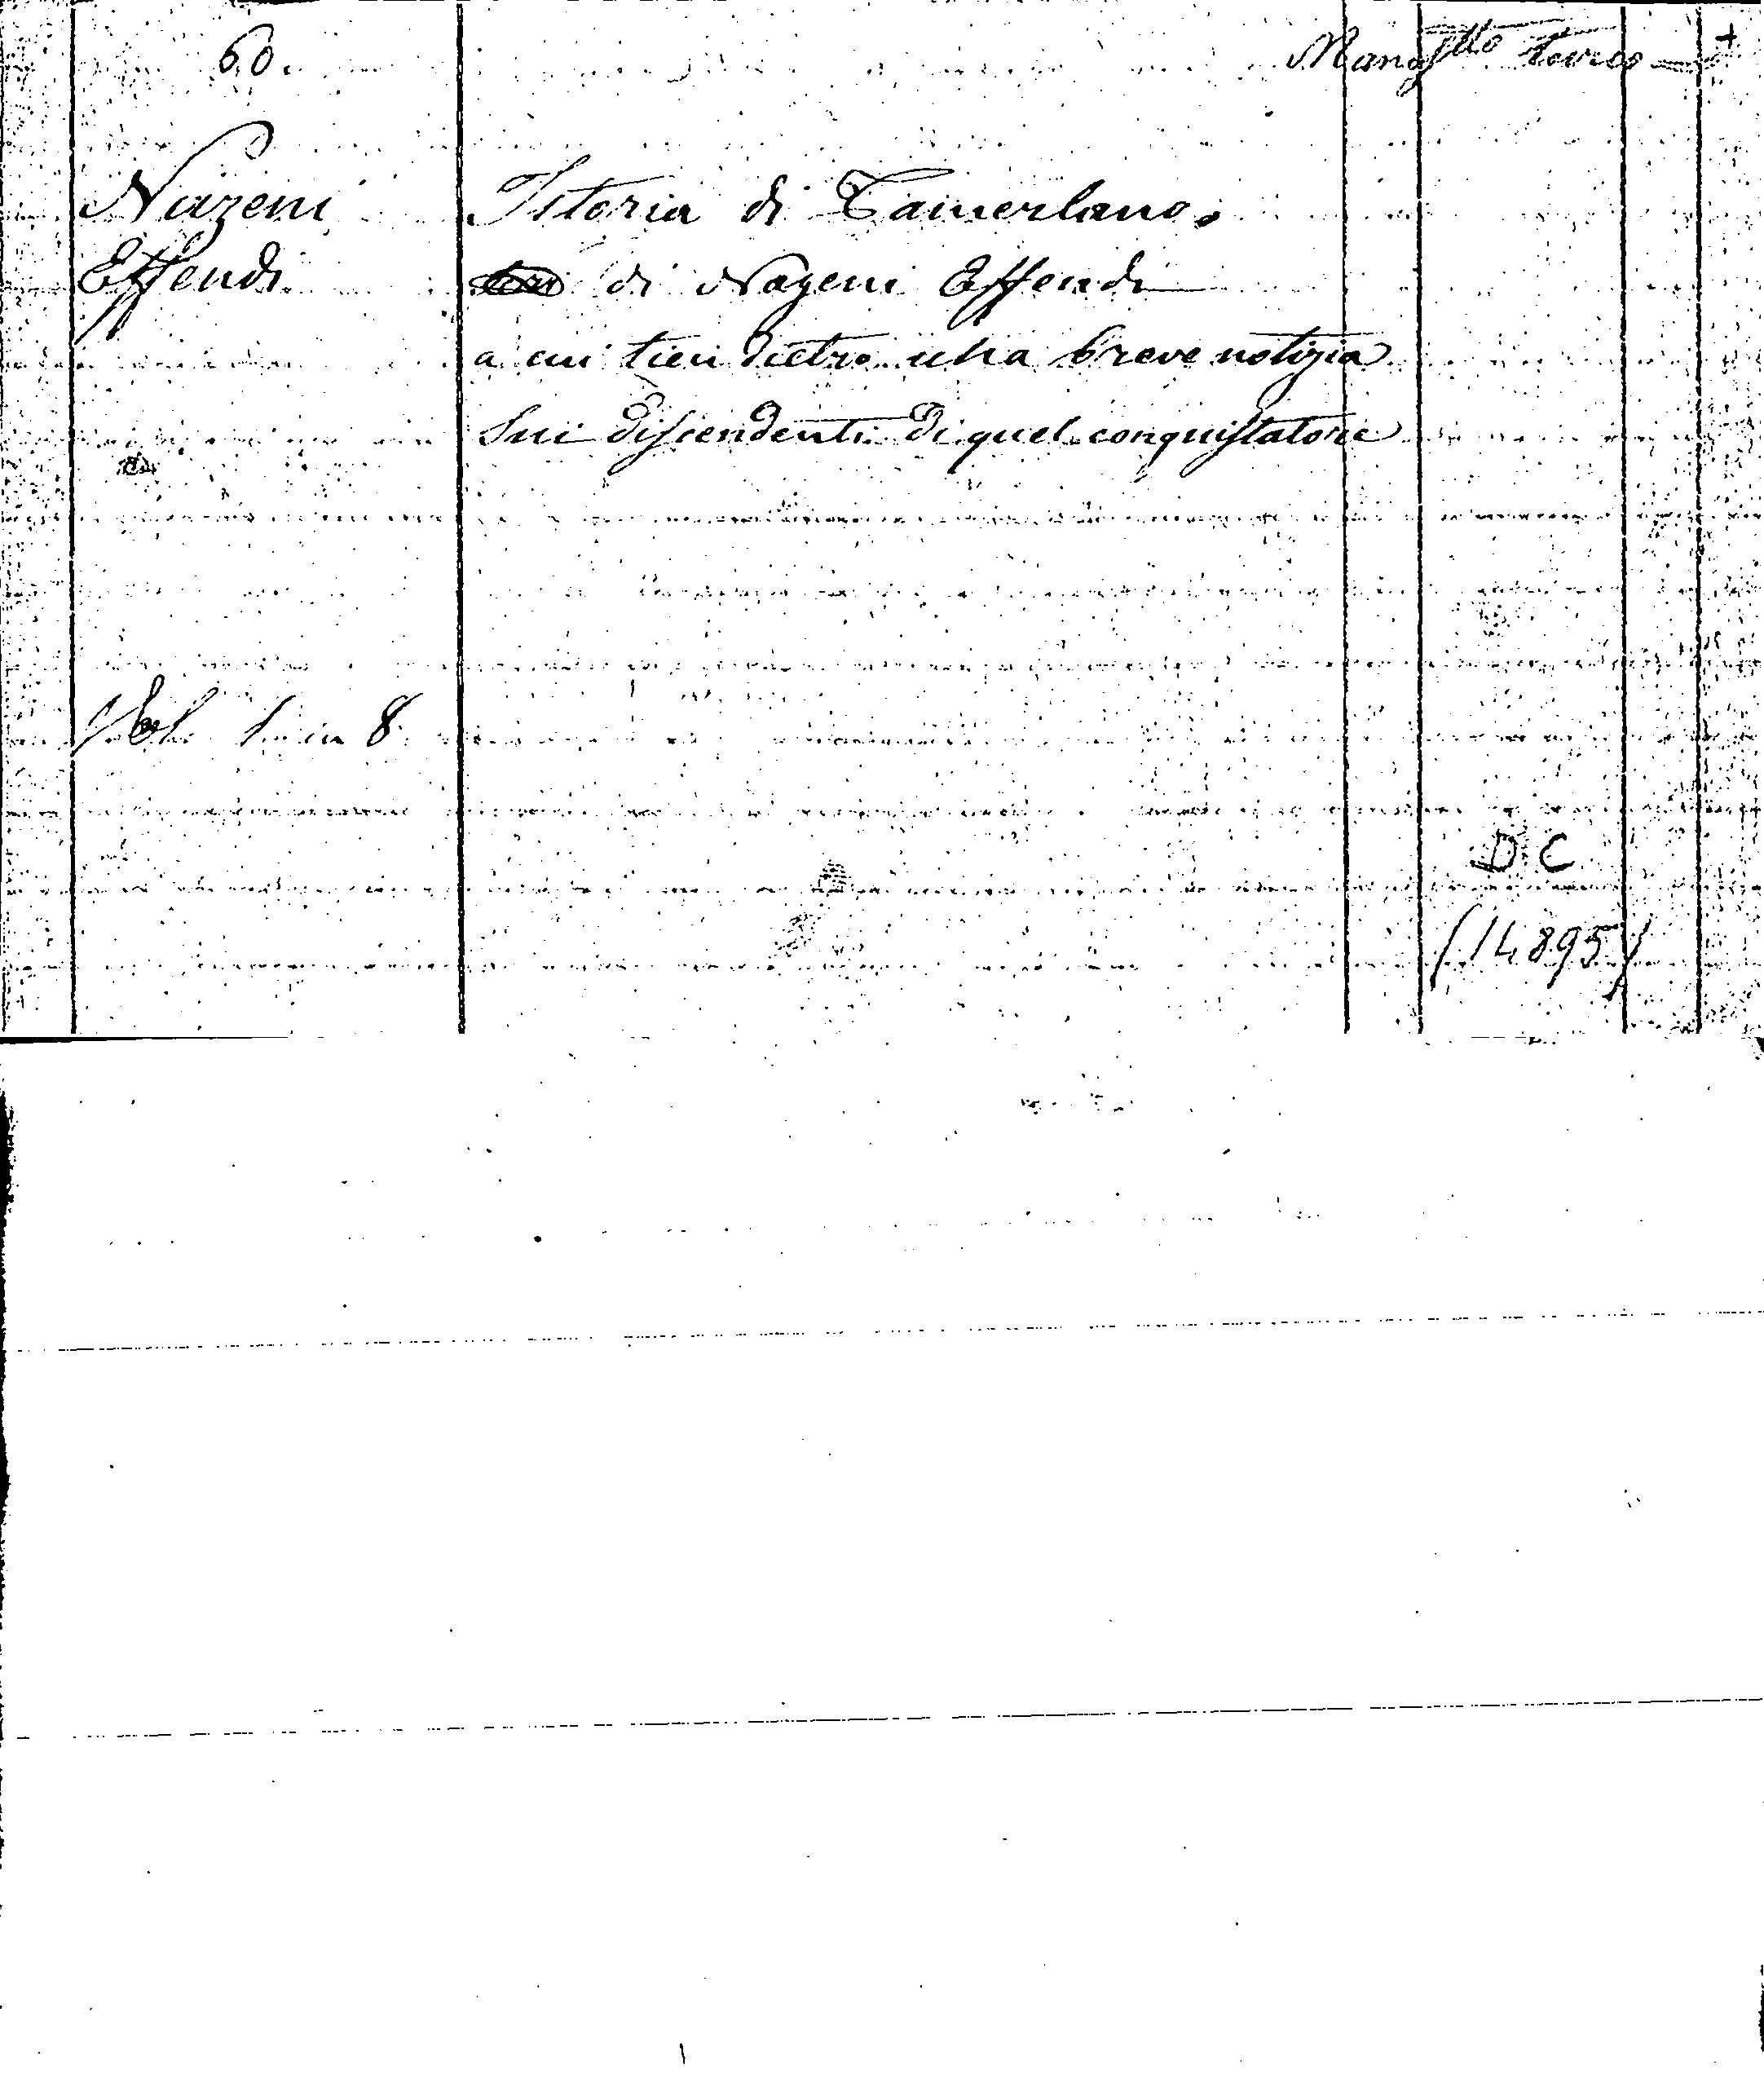 60. Manosstto Turco +
Nazemi Istoria di Tamerlano.
Effendi di Nazemi Effendi
a cui tien dietro una breve notizia
sui discendenti di quel conquistatore
Vol. 1. in 8.
D C
(14895)